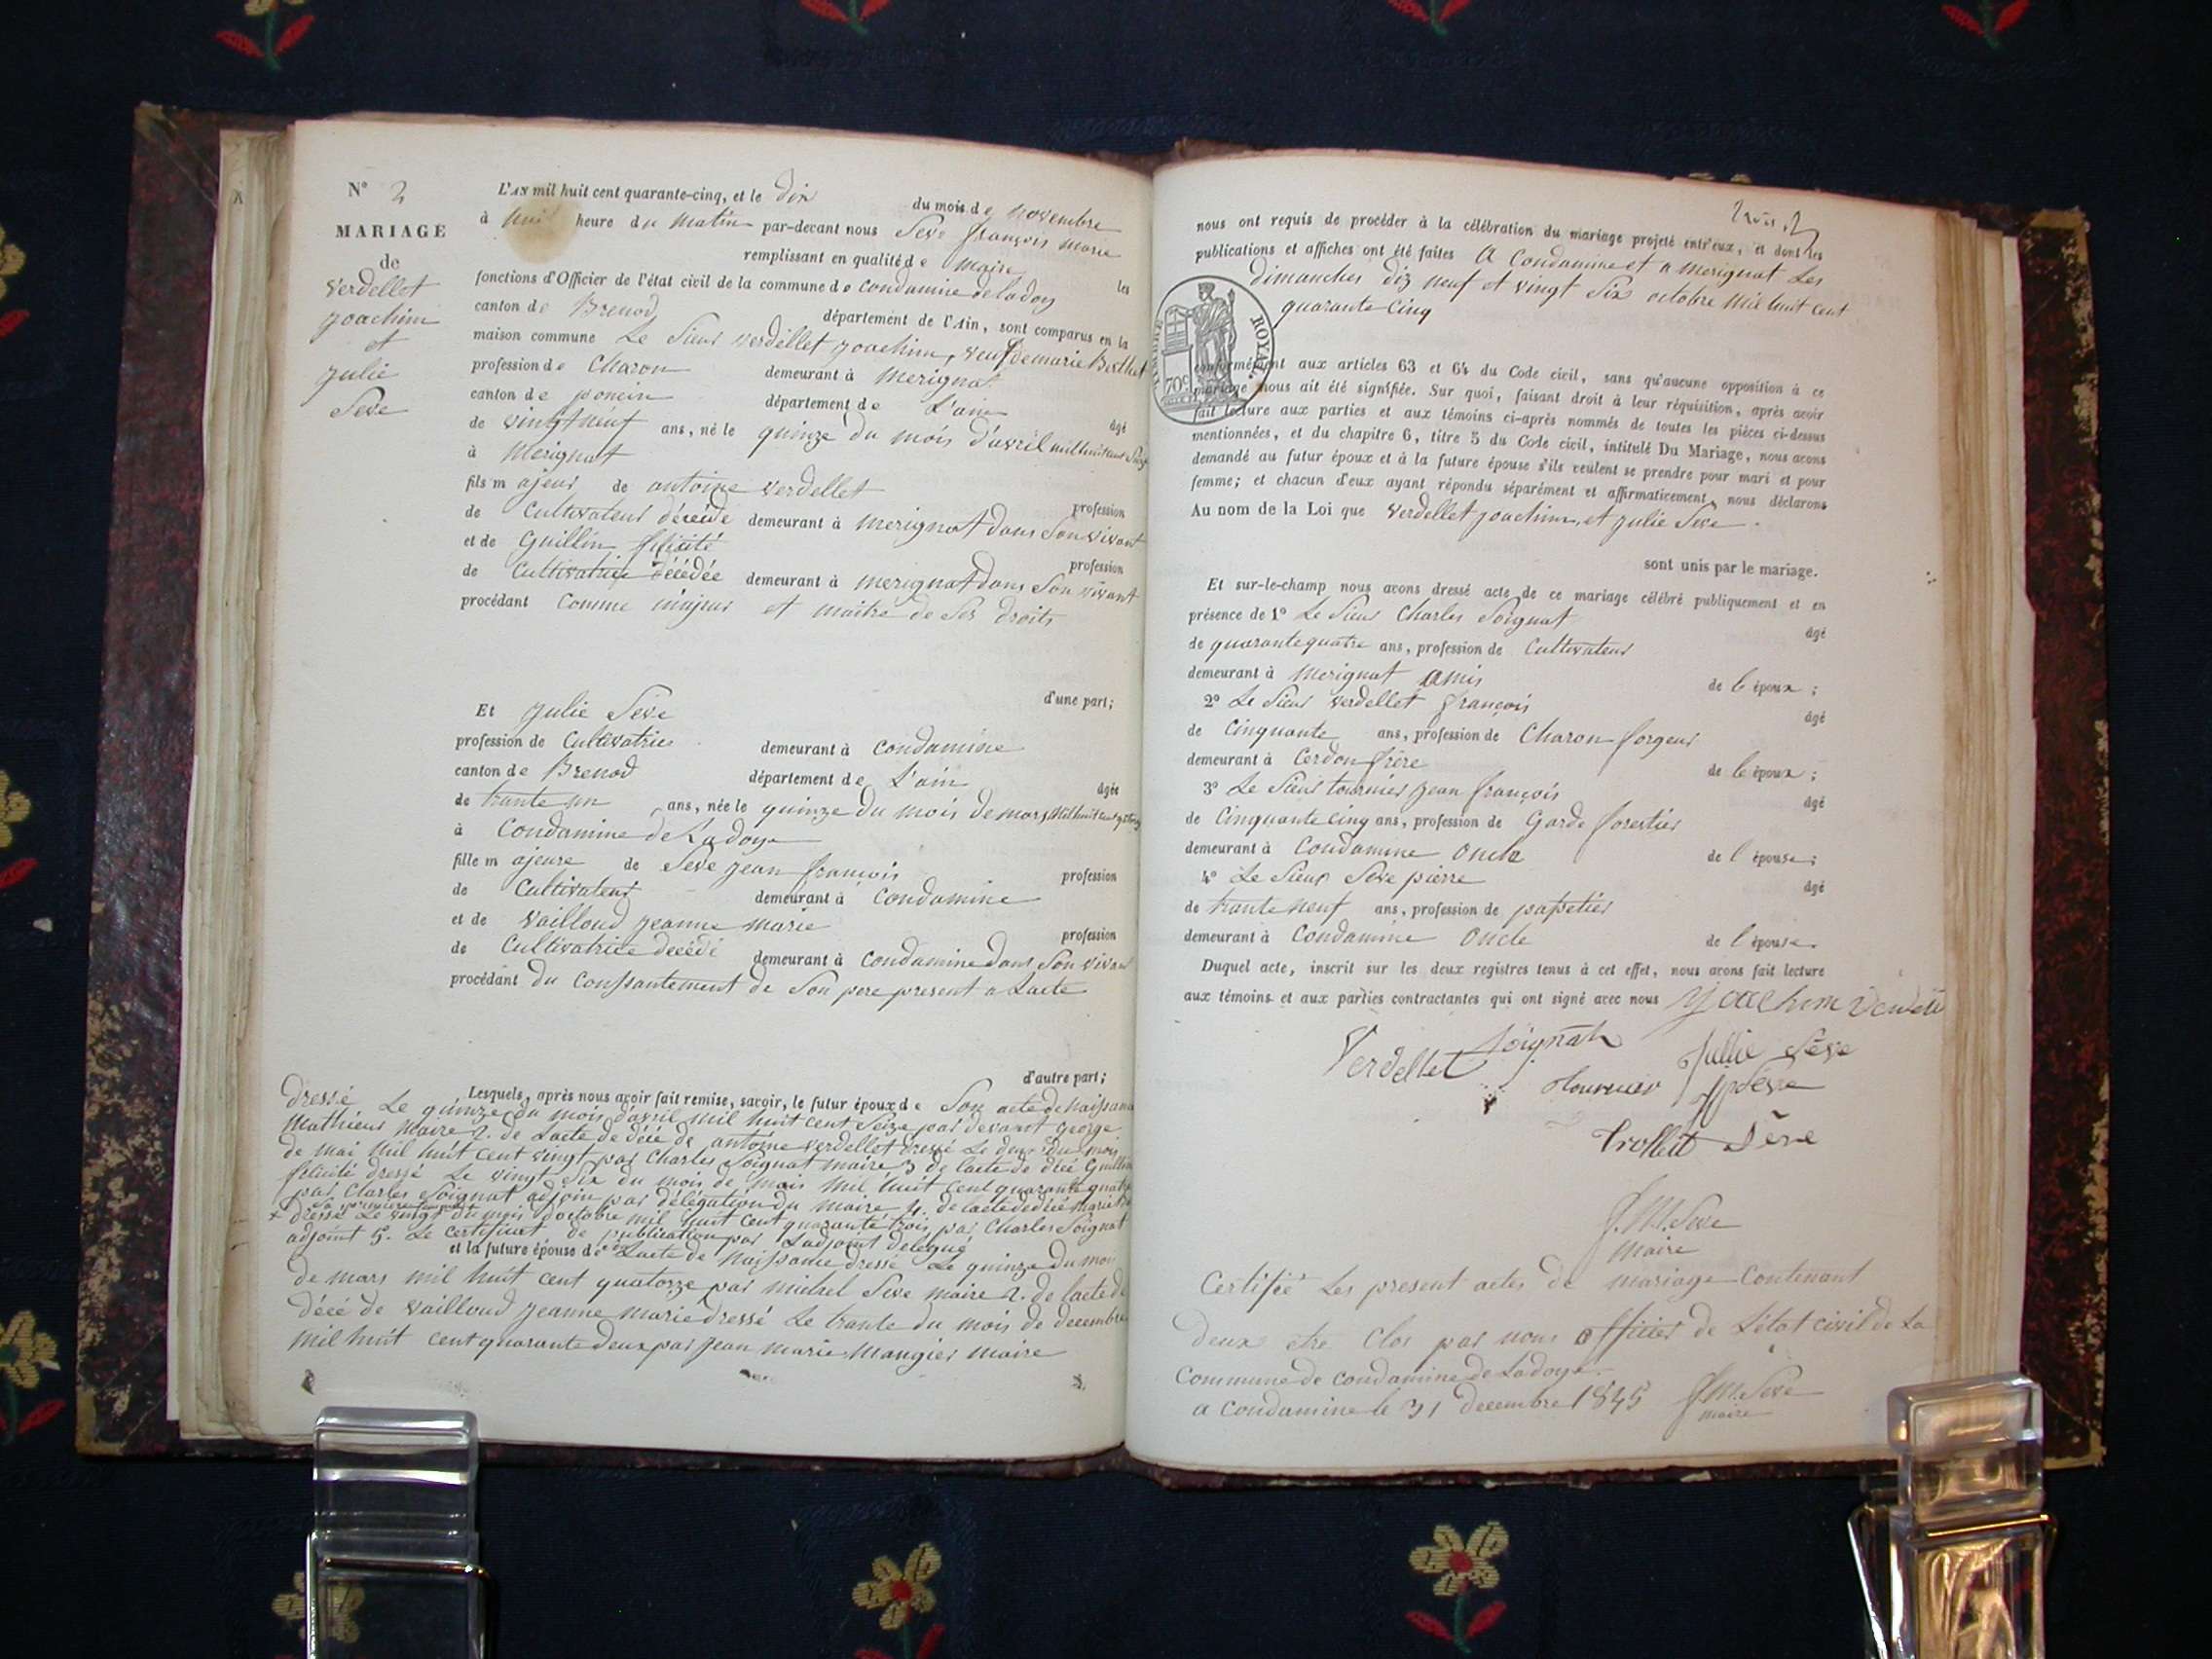 N° 2
MARIAGE
de
Verdellet
joachim
et
Julie
Seve
L'AN mil huit cent quarante-cinq, et le dix du mois de novembre
à huit heure du matin par-devant nous Seve françois marie
remplissant en qualité de maire les
fonctions d'Officier de l'état civil de la commune de Condamine de ladoy
canton de Brenod département de l'Ain, sont comparus en la
maison commune Le Sieur verdellet joachim, veuf de marie Berthet
profession de Charon demeurant à merignat
canton de poncin département de L'ain âgé
de vingt neuf ans, né le quinze du mois d'avril mil huit cent Seize
à Merignat
fils majeur de antoine verdellet profession
de Cultivateur décéde demeurant à merignat dans Son vivant
et de Guillin félicité profession
de Cultivatrice décédée demeurant à merignat dans Son vivant
procédant Comme majeur et maitre de Ses droits
d'une part;
Et Julie Seve
profession de Cultivatrice demeurant à Condamine
canton de Brenod département de L'ain âgée
de trante un ans, née le quinze du mois de mars mil huit cent quatorze
à Condamine de Ladoye
fille majeure de Seve jean françois profession
de Cultivateur demeurant à Condamine
et de Vailloud jeanne marie profession
de Cultivatrice decédé demeurant à Condamine dans Son vivant
procédant du Conssantement de Son pere present a Lacte
d'autre part;
Lesquels, après nous avoir fait remise, savoir, le futur époux de Son acte de naissance
dressé Le quinze du mois d'avril mil huit cent Seize par devant george
Mathieux maire 2. de Lacte de décé de antoine verdellet dressé Le deux du mois
de mai mil huit cent vingt par Charles Soignat maire 3 de lacte de décé Guillin
félicité dressé Le vingt Six du mois de mars mil huit cent quarante quatre
par Charles Soignat adjoin par délégation du maire 4. de lacte de décé marie
+ dressé Le vingt du mois d'octobre mil huit cent quarante trois par Charles Soignat
adjoint 5. Le certificat de publication par Ladjoint délégué
et la future épouse de Lacte de naissance dressé Le quinze du mois
de mars mil huit cent quatorze par michel Seve maire 2. de lacte de
décé de Vailloud jeanne marie dressé Le trante du mois de decembre
mil huit cent quarante deux par jean marie Mangier maire
nous ont requis de procéder à la célébration du mariage projeté entr'eux, et dont les
publications et affiches ont été faites A Condamine et a merignat Les
dimanches dix neuf et vingt Six octobre mil huit cent
quarante Cinq
TIMBRE ROYAL
70c
conformément aux articles 63 et 64 du Code civil, sans qu'aucune opposition à ce
mariage nous ait été signifiée. Sur quoi, faisant droit à leur réquisition, après avoir
fait lecture aux parties et aux témoins ci-après nommés de toutes les pièces ci-dessus
mentionnées, et du chapitre 6, titre 5 du Code civil, intitulé Du Mariage, nous avons
demandé au futur époux et à la future épouse s'ils veulent se prendre pour mari et pour
femme; et chacun d'eux ayant répondu séparément et affirmativement, nous déclarons
Au nom de la Loi que verdellet joachim, et julie Seve.
sont unis par le mariage.
Et sur-le-champ nous avons dressé acte de ce mariage célébré publiquement et en
présence de 1° Le Sieur Charles Soignat âgé
de quarante quatre ans, profession de Cultivateur
demeurant à merignat amis de lépoux;
2° Le Sieur verdellet françois âgé
de Cinquante ans, profession de Charon forgeur
demeurant à Cerdon frère de lépoux;
3° Le Sieur tournier jean françois âgé
de Cinquante cinq ans, profession de Garde forestier
demeurant à Condamine Oncle de l épouse;
4° Le Sieur Seve pierre âgé
de trante neuf ans, profession de papetier
demeurant à Condamine Oncle de l épouse.
Duquel acte, inscrit sur les deux registres tenus à cet effet, nous avons fait lecture
aux témoins et aux parties contractantes qui ont signé avec nous Joachim
Verdellet Soignat Jullie Sève
Tournier Sève
Trollet Sève
f. M. Seve
Maire
Certifié Les present actes de mariage Contenant
deux etre Clos par nous officier de Létat civil de La
Commune de Condamine de Ladoye.
a Condamine le 31 decembre 1845 f. M. Seve
maire